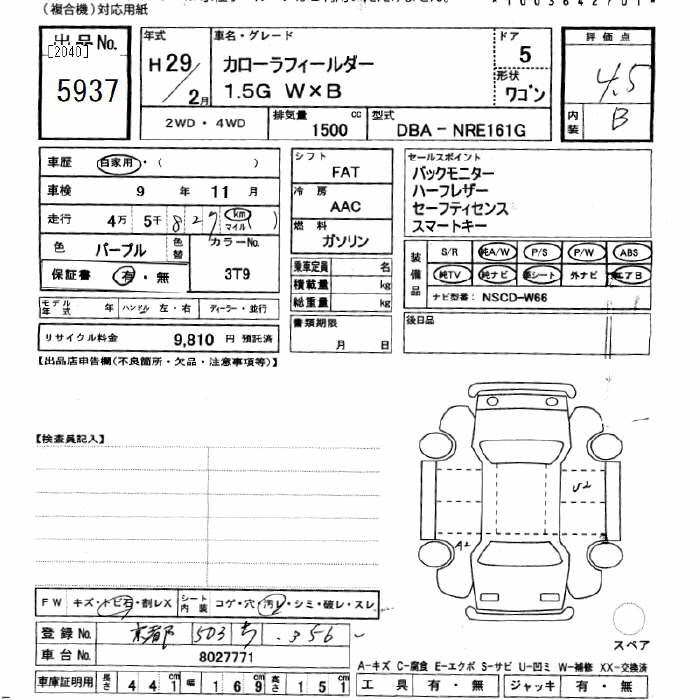 (複合機)対応用紙
出品No.
[2040]
5937
年式
H29/2月
車名・グレード
カローラフィールダー
1.5G W×B
ドア
5
形状
ワゴン
評価点
4.5
内装
B
2WD・4WD
排気量
1500 cc
型式
DBA-NRE161G
車歴 自家用・( )
車検 9 年 11 月
走行 4万 5千 827 km マイル ( )
色 パープル 色替
カラーNo.
3T9
保証書 有・無
モデル年式 年 ハンドル 左・右 ディーラー・並行
リサイクル料金 9,810 円 預託済
シフト
FAT
冷房
AAC
燃料
ガソリン
乗車定員 名
積載量 kg
総重量 kg
書類期限
月 日
セールスポイント
バックモニター
ハーフレザー
セーフティセンス
スマートキー
装備品
S/R 純A/W P/S P/W ABS
純TV 純ナビ 革シート 外ナビ エアB
ナビ型番: NSCD-W66
後日品
【出品店申告欄(不良箇所・欠品・注意事項等)】
【検査員記入】
U2
A2
FW キズ・トビ石・割レX シート内装 コゲ・穴・汚レ・シミ・破レ・スレ
登録No. 京都 503 ち .356
車台No. 8027771
車庫証明用 長さ 441 cm 幅 169 cm 高さ 151 cm
スペア
A-キズ C-腐食 E-エクボ S-サビ U-凹ミ W-補修 XX-交換済
工具 有・無 ジャッキ 有・無